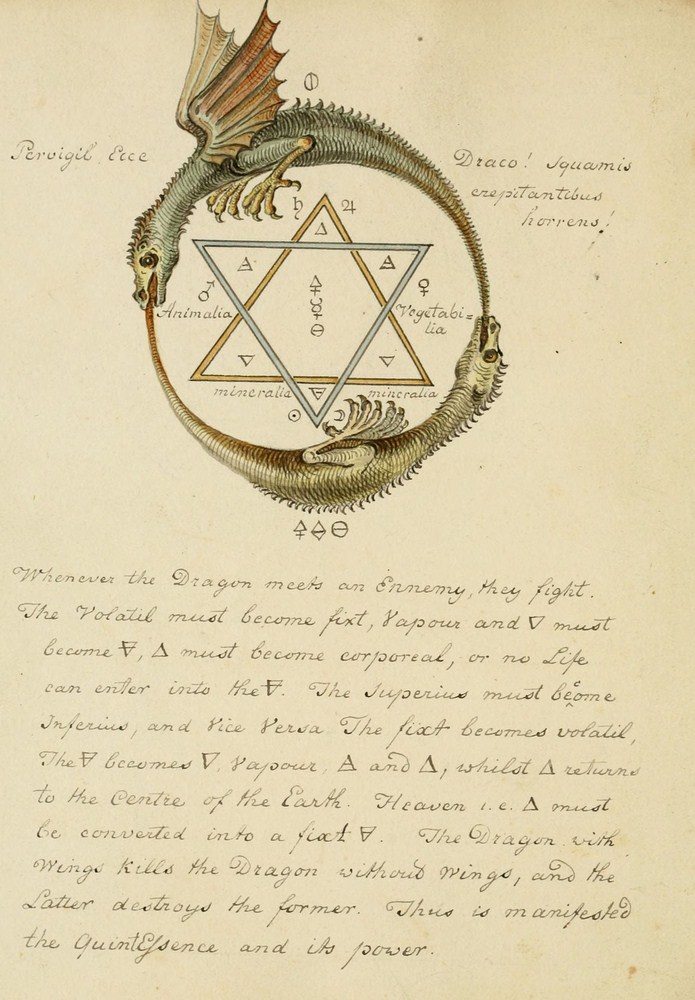 Pervigil Ecce
Draco! Squamis
crepitantibus
horrens!
♄ ♃
🜂
🜁 🜁
♂ ♀
🜍
☿
🜔
Animalia
Vegetabi=
lia
🜄 🜄
mineralia mineralia
🜃
☉ ☽
🜍 🜔
Whenever the Dragon meets an Ennemy, they fight.
The Volatil must become fixt, Vapour and 🜄 must
become 🜃, 🜂 must become corporeal, or no Life
can enter into the 🜃. The Superius must become
Inferius, and Vice Versa The fixt becomes volatil,
The 🜃 becomes 🜄, Vapour, 🜁 and 🜂, whilst 🜂 returns
to the Centre of the Earth. Heaven i.e. 🜂 must
be converted into a fixt 🜃. The Dragon with
Wings kills the Dragon without wings, and the
Latter destroys the former. Thus is manifested
the QuintEssence and its power.